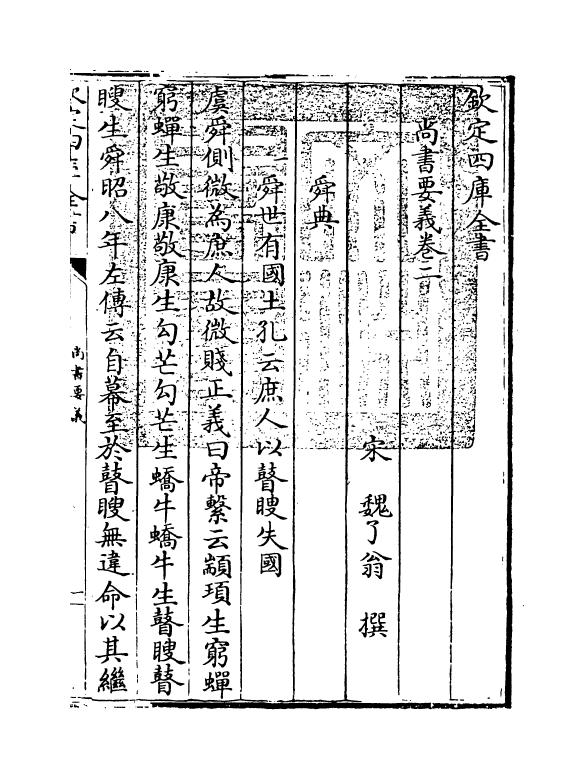 欽定四庫全書
尚書要義卷二
宋 魏了翁 撰
舜典
一舜世有國土孔云庶人以瞽瞍失國
虞舜側微為庶人故微賤正義曰帝繫云顓頊生窮蟬
窮蟬生敬康敬康生勾芒勾芒生蟜牛蟜牛生瞽瞍瞽
瞍生舜昭八年左傳云自幕至於瞽瞍無違命以其繼
尚書要義
一